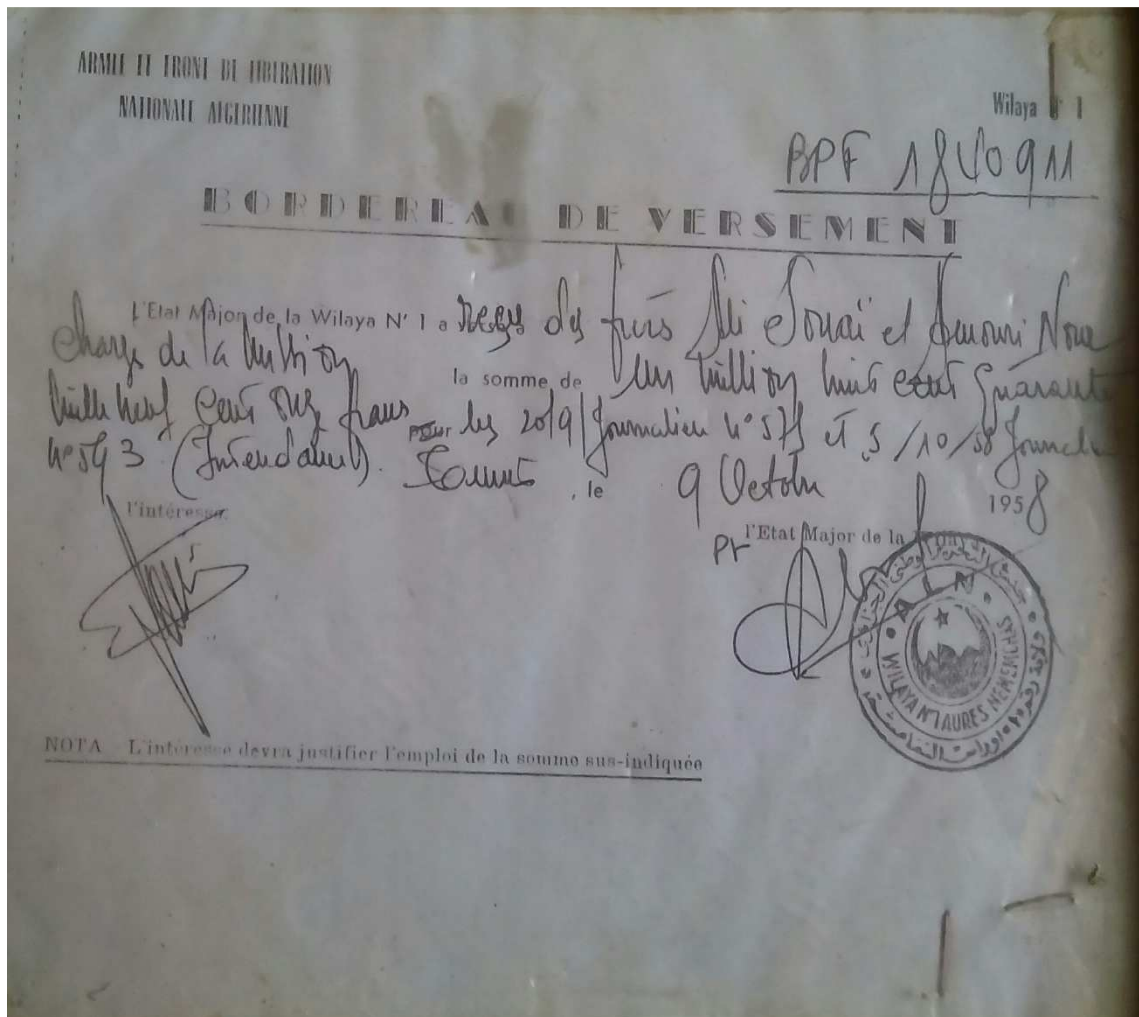 ARMEE ET FRONT DE LIBERATION
NATIONALE ALGERIENNE
Wilaya N° 1
BPF 1840911
BORDEREAU DE VERSEMENT
L'Etat Major de la Wilaya N° 1 a reçu des frères Ali Souaï et Nour
Charge de la Mission
la somme de Un million huit cent quarante
mille neuf cent onze francs pour les 20/9 Journalier N° 575 et 5/10/58
N° 593 (Intendance). Tunis, le 9 Octobre 1958
L'intéressé,
Pr l'Etat Major de la
جيش التحرير الوطني الجزائري
A L N
WILAYA N°1 AURES NEMEMCHAS
ولاية رقم ١ اوراس النمامشة
NOTA L'intéressé devra justifier l'emploi de la somme sus-indiquée